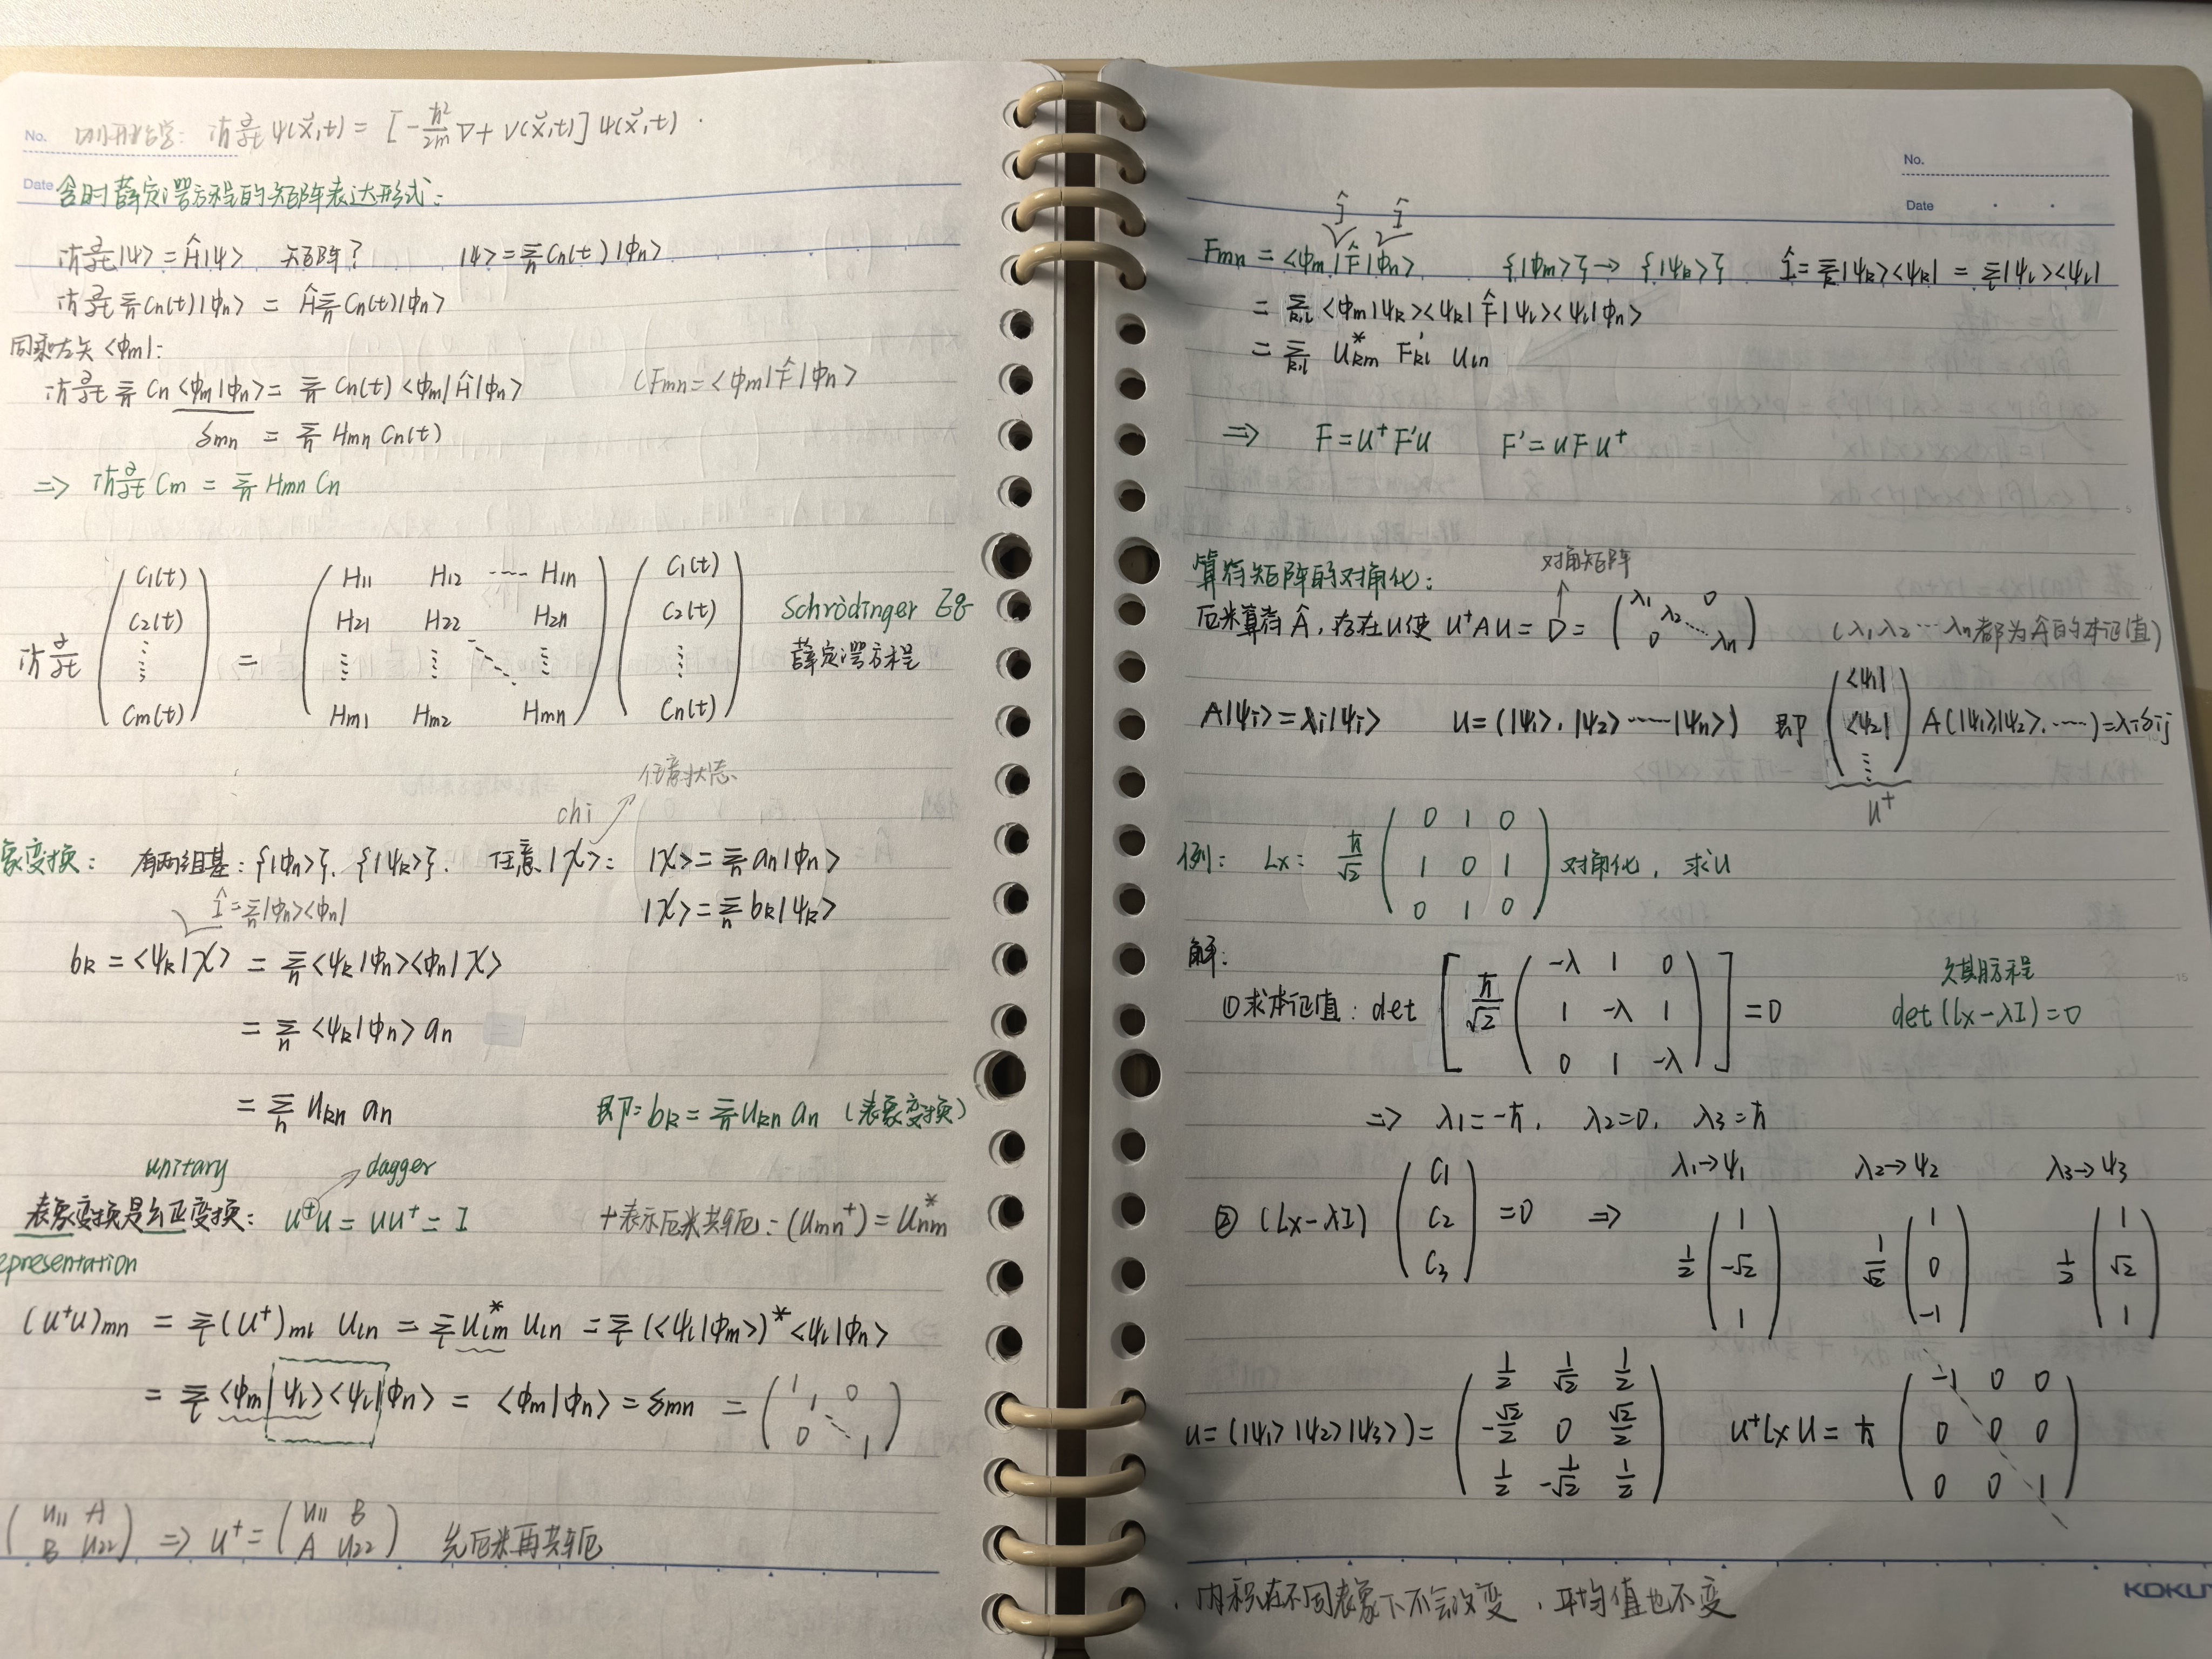 No.
iħ ∂/∂t ψ(x⃗,t) = [-ħ²/2m ∇ + V(x⃗,t)] ψ(x⃗,t).
Date 含时薛定谔方程的矩阵表达形式:
iħ ∂/∂t |ψ> = Ĥ|ψ> 矩阵? |ψ> = Σn Cn(t)|φn>
iħ ∂/∂t Σn Cn(t)|φn> = Ĥ Σn Cn(t)|φn>
同乘左矢 <φm|:
iħ ∂/∂t Σn Cn <φm|φn> = Σn Cn(t) <φm|Ĥ|φn> (Fmn = <φm|F̂|φn>
δmn = Σn Hmn Cn(t)
=> iħ ∂/∂t Cm = Σn Hmn Cn
iħ ∂/∂t ( C1(t) C2(t) ⋮ Cm(t) ) = ( H11 H12 ····· H1n
H21 H22 H2n
⋮ ⋮ ⋱ ⋮
Hm1 Hm2 Hmn ) ( C1(t) C2(t) ⋮ Cn(t) ) Schrödinger Eg
薛定谔方程
任意状态
chi
象变换: 有两组基: {|φn>}, {|ψk>}. 任意|χ>: |χ> = Σn an|φn>
Î = Σn |φn><φn| |χ> = Σn bk|ψk>
bk = <ψk|χ> = Σn <ψk|φn><φn|χ>
= Σn <ψk|φn> an
= Σn ukn an 即: bk = Σn ukn an (表象变换)
unitary dagger
表象变换是幺正变换: u⁺u = uu⁺ = I +表示厄米共轭: (umn⁺) = u*nm
epresentation
(u⁺u)mn = Σl (u⁺)ml uln = Σl u*lm uln = Σl (<ψl|φm>)* <ψl|φn>
= Σl <φm|ψl><ψl|φn> = <φm|φn> = δmn = ( 1 1 0 0 ⋱ 1 )
( u11 A
B u22 ) => u⁺ = ( u11 B
A u22 ) 先厄米再共轭
No.
Date
Î Î
Fmn = <φm|F̂|φn> {|φm>} → {|ψk>} Î = Σk |ψk><ψk| = Σl |ψl><ψl|
= Σk,l <φm|ψk><ψk|F̂|ψl><ψl|φn>
= Σk,l u*km F'kl uln
=> F = u⁺F'u F' = uFu⁺
对角矩阵
算符矩阵的对角化:
厄米算符 Â, 存在u使 u⁺Au = D = ( λ1 λ2 0 0 ⋱ λn ) (λ1 λ2 ··· λn都为Â的本征值)
A|ψi> = λi|ψi> u = (|ψ1>, |ψ2> ······ |ψn>) 即 ( <ψ1| <ψ2| ⋮ ) A(|ψ1>|ψ2>, ·····) = λiδij
u⁺
例: Lx: ħ/√2 ( 0 1 0
1 0 1
0 1 0 ) 对角化, 求u
解:
①求本征值: det [ ħ/√2 ( -λ 1 0
1 -λ 1
0 1 -λ ) ] = 0
久期方程
det (Lx-λI)=0
=> λ1=-ħ, λ2=0, λ3=ħ
λ1→ψ1 λ2→ψ2 λ3→ψ3
② (Lx-λI) ( C1 C2 C3 ) = 0 => 1/2 ( 1 -√2 1 ) 1/√2 ( 1 0 -1 ) 1/2 ( 1 √2 1 )
u = (|ψ1> |ψ2> |ψ3>) = ( 1/2 1/√2 1/2
-√2/2 0 √2/2
1/2 -1/√2 1/2 ) u⁺Lx u = ħ ( -1 0 0
0 0 0
0 0 1 )
内积在不同表象下不会改变, 平均值也不变